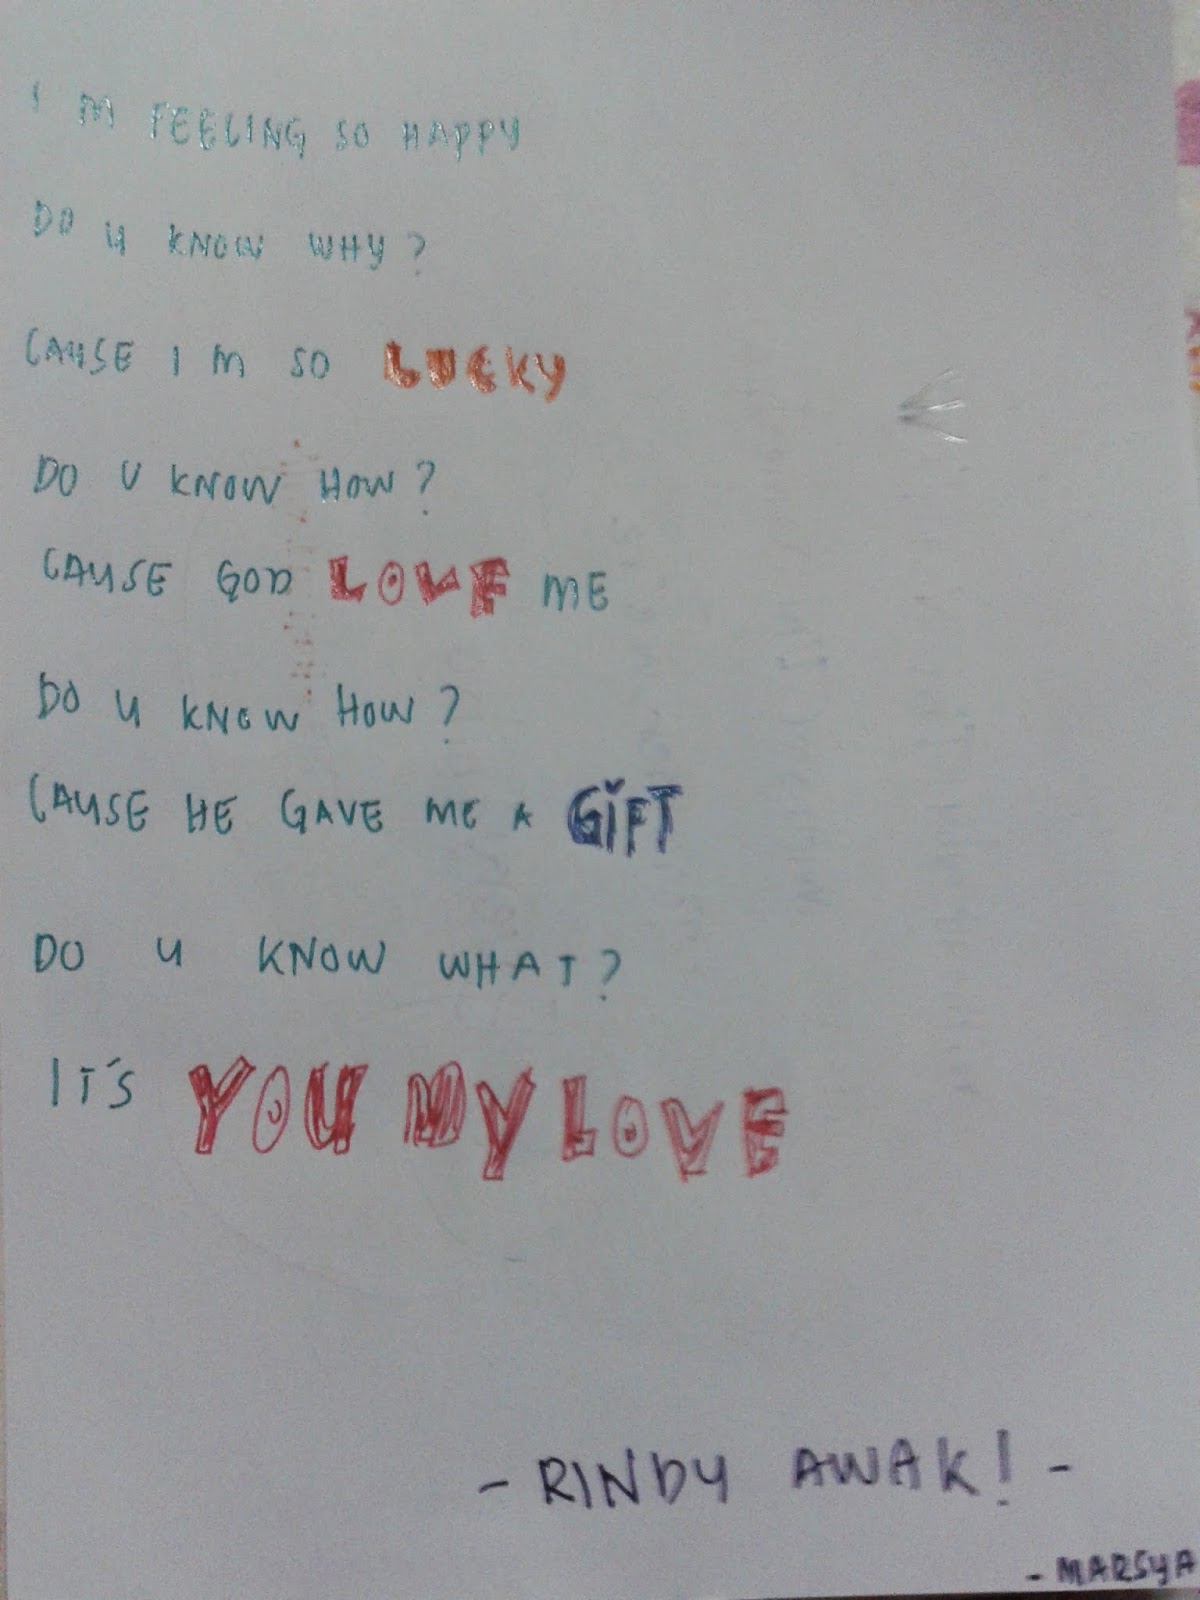 I M FEELING SO HAPPY
DO U KNOW WHY?
CAUSE I M SO LUCKY
DO U KNOW HOW?
CAUSE GOD LOVE ME
DO U KNOW HOW?
CAUSE HE GAVE ME A GIFT
DO U KNOW WHAT?
IT'S YOU MY LOVE
- RINDY AWAK! -
- MARSYA